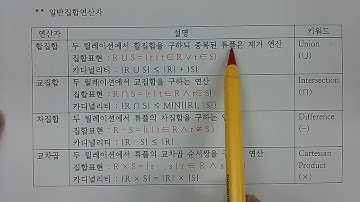 ** 일반집합연산자
연산자 설명 키워드
합집합 두 릴레이션에서 합집합을 구하되 중복된 튜플은 제거 연산 Union
집합표현 : R∪S={t|t∈R∨t∈S} (∪)
카디널리티 : |R∪S|≤|R|+|S|
교집합 두 릴레이션에서 교집합을 구하는 연산 Intersection
집합표현 : R∩S={t|t∈R∧t∈S} (∩)
카디널리티 : |R∩S|≤MIN{|R|, |S|}
차집합 두 릴레이션에서 튜플의 차집합을 구하는 연산 Difference
집합표현 : R-S={t|t∈R∧t∉S} (-)
카디널리티 : |R-S|≤|R|
교차곱 두 릴레이션에서 튜플의 교차곱 순서쌍을 연산 Cartesian
집합표현 : R×S={r s|r∈R∧ Product
카디널리티 : |R×S|=|R|×|S| (×)